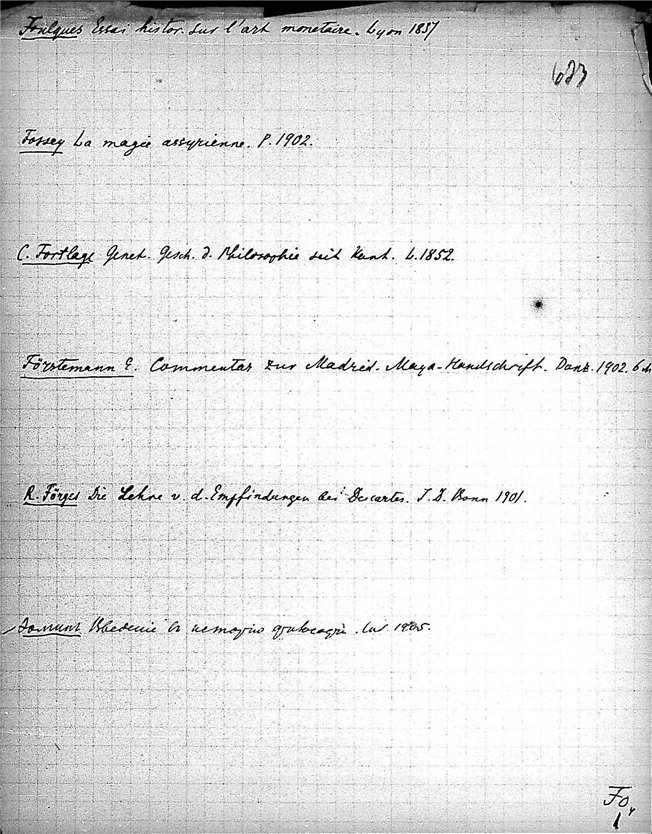 Foulques Essai histor. sur l'art monetaire. Lyon 1837
623
Fossey La magie assyrienne. P. 1902.
C. Fortlage Genet. Gesch. d. Philosophie seit Kant. L. 1852.
Förstemann E. Commentar zur Madrid. Maya-Handschrift. Danz. 1902. 6 M
R. Förges Die Lehre v. d. Empfindungen bei Descartes. I. D. Bonn 1901.
Фомин Введение в историю философии. 1905.
Fo
1